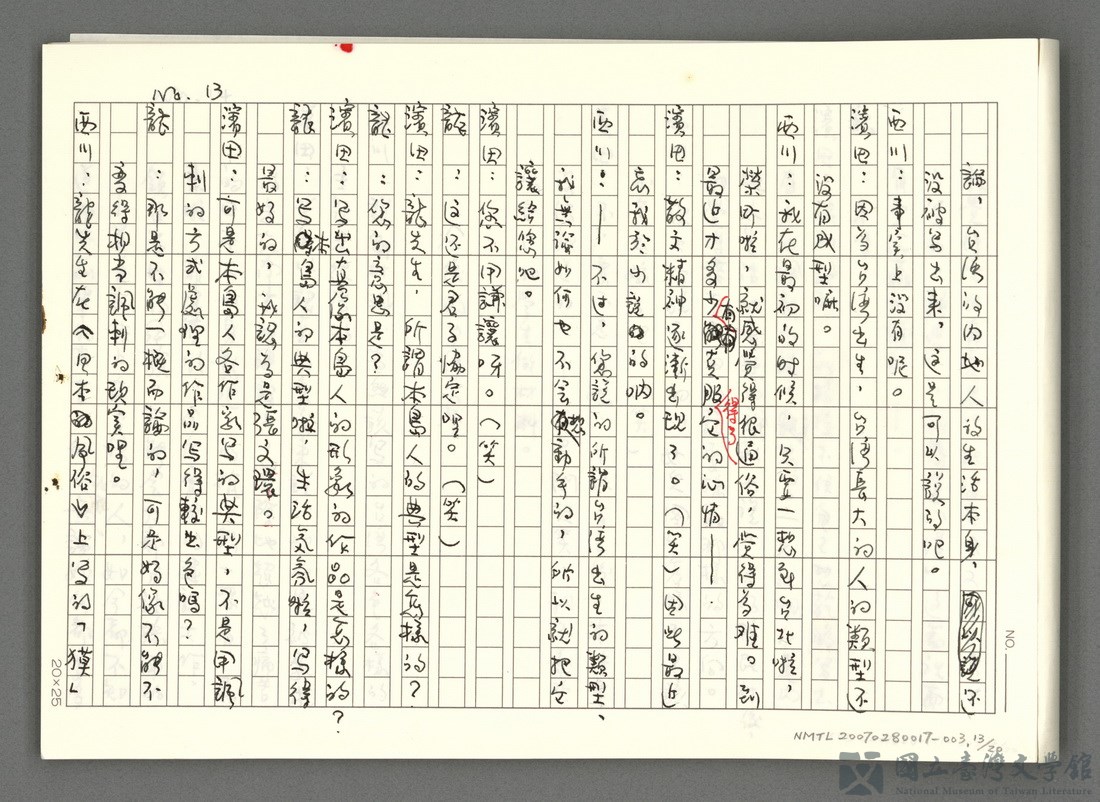 No. 13
論，台湾的内地人的生活本身，還
没被写出来，這是可以說的吧。
西川：事实上没有呢。
濱田：因為台湾出生，台湾長大的人的類型还
没有成型嘛。
西川：我在最初的時候，只要一想到台北啦，
榮町啦，就感覺得很通俗，覺得為難。到
最近才多少有克服得了它的心情——.
濱田：散文精神逐漸出現了。（笑）因此最近
忘我於小說的吶。
西川：——不过，您說的所謂台湾出生的類型、
我無論如何也不会想動手的，所以就把它
讓給您吧。
濱田：您不用謙讓呀。（笑）
龍　：这还是君子協定哩。（笑）
濱田：龍先生，所謂本島人的典型是怎樣的？
龍　：您的意思是？
濱田：写出真像本島人的形象的作品是怎樣的？
龍　：写本島人的典型啦，生活気氛啦，写得
最好的，我認為是張文環。
濱田：可是本島人各作家写的典型，不是用諷
刺的方式處理的作品写得較出色嗎？
龍　：那是不能一概而論的，可是好像不能不
變得相当諷刺的現实哩。
西川：龍先生在《日本風俗》上写的「獏」
NO.
20×25
NMTL20070280017-003,13/20
國立臺灣文學館
National Museum of Taiwan Literature